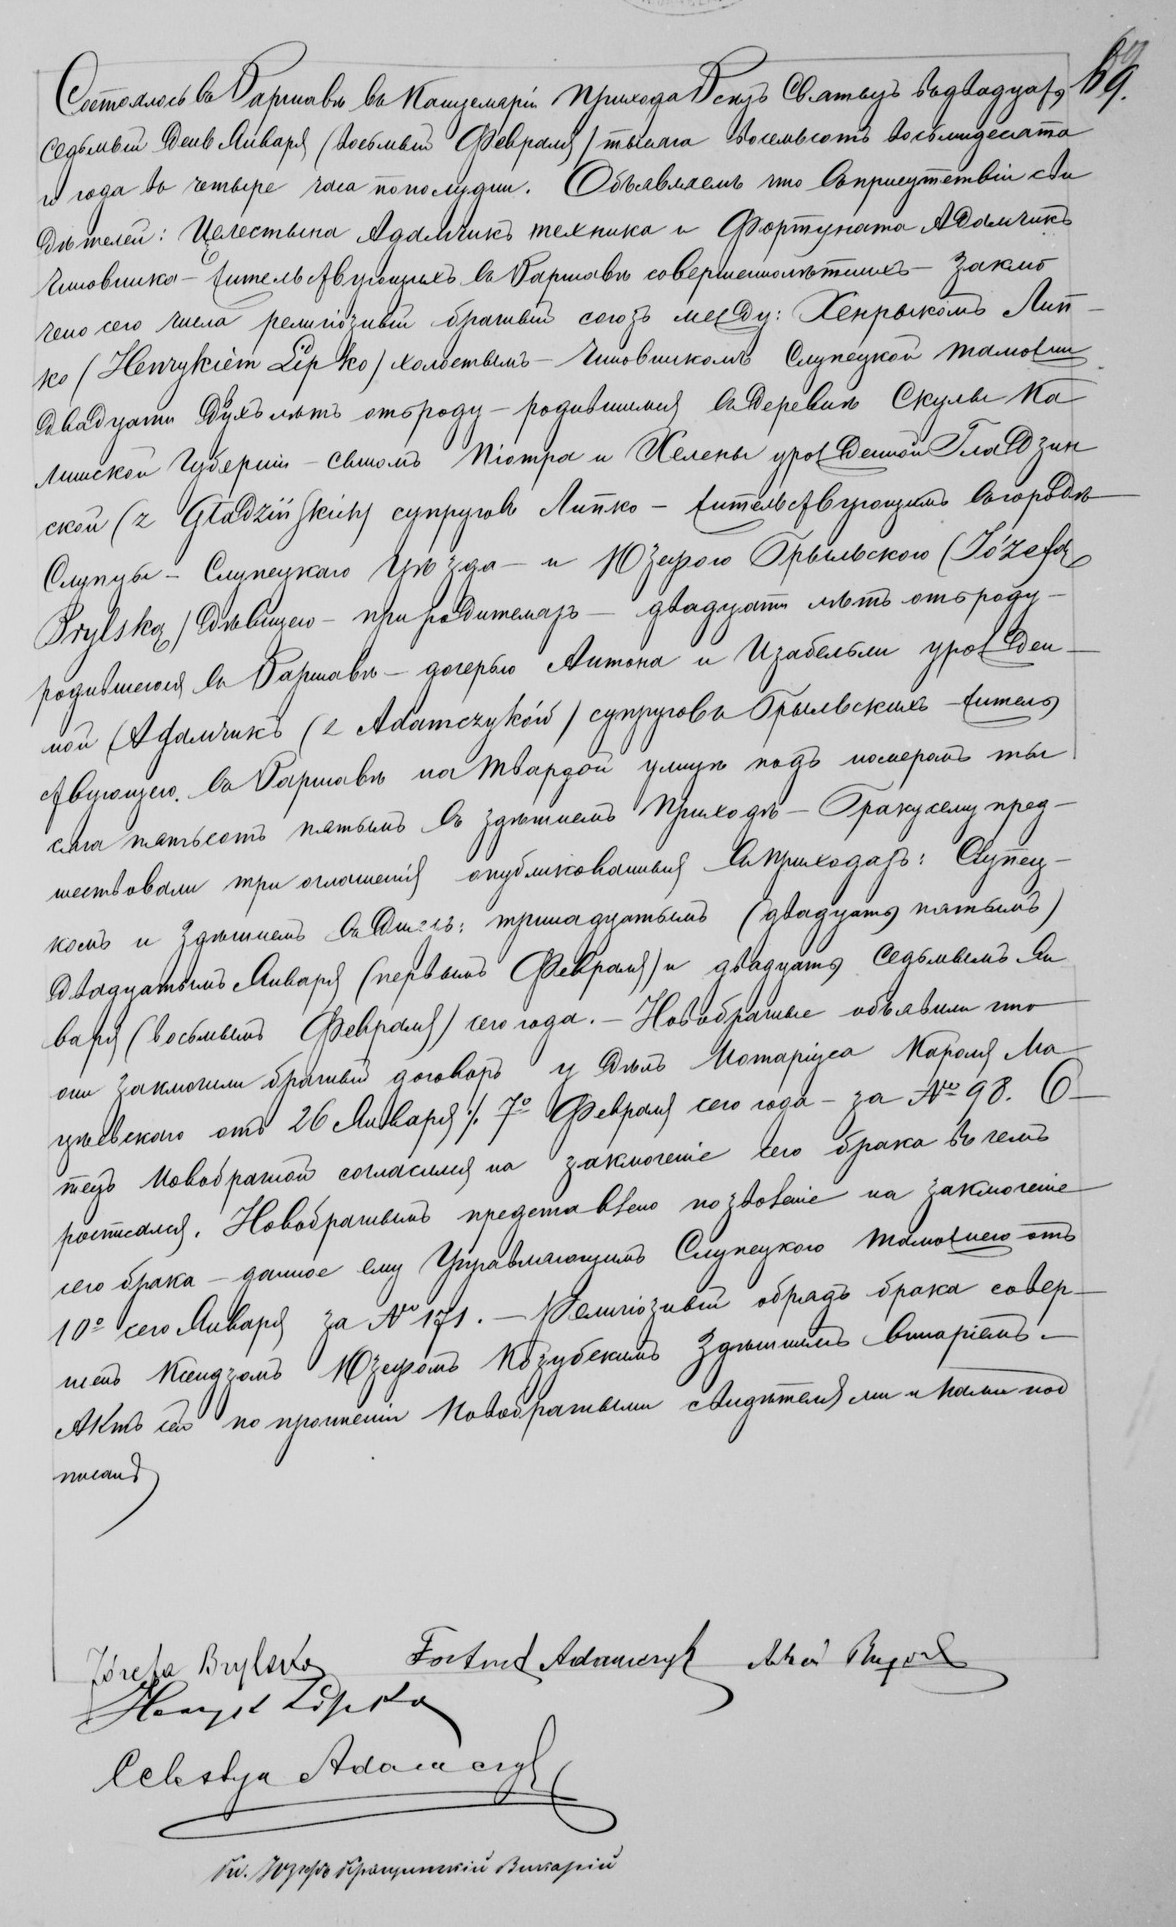 69.
Состоялось въ Варшавѣ въ Канцеляріи Прихода Всѣхъ Святыхъ въ двадцать
седьмый день Января (восьмый Февраля) тысяча восемьсотъ восьмидесята
го года въ четыре часа пополудни. Объявляемъ что въ присутствіи сви
дѣтелей: Целестына Адамчикъ техника и Фортуната Адамчикъ
чиновника – жительствующихъ въ Варшавѣ совершеннолѣтнихъ – заклю
чено сего числа религіозный брачный союзъ между: Хенрыкомъ Лип–
ко (Henrykiem Lipko) холостымъ – чиновникомъ Слупецкой таможни
двадцати двухъ лѣтъ отъ роду – родившимся въ деревнѣ Скулы Ка
лишской Губерніи – сыномъ Піотра и Хелены урожденной Гладзин
ской (z Gładzińskich) супруговъ Липко – жительствующимъ въ городѣ
Слупцы – Слупецкаго Уѣзда – и Юзефою Брыльскою (Józefą
Brylską) дѣвицею – при родителяхъ – двадцати лѣтъ отъ роду –
родившеюся въ Варшавѣ – дочерью Антона и Изабеллы урожден–
ной Адамчикъ (z Adamczyków) супруговъ Брыльскихъ – житель
ствующею въ Варшавѣ на Твардой улицѣ подъ номеромъ ты
сяча пятьсотъ пятымъ въ здѣшнемъ Приходѣ – Браку сему пред–
шествовали три оглашенія опубликованныя въ приходахъ: Слупец–
комъ и здѣшнемъ въ дняхъ: тринадцатымъ (двадцать пятымъ)
двадцатымъ Января (первымъ Февраля) и двадцать седьмымъ Ян
варя (восьмымъ Февраля) сего года. – Новобрачные объявили что
они заключили брачный договоръ у дѣлъ Нотаріуса Кароля Ма
цѣевскаго отъ 26 Января / 7º Февраля сего года – за № 98. О–
тецъ Новобрачной согласился на заключеніе сего брака въ чемъ
росписался. Новобрачнымъ представлено позволеніе на заключеніе
сего брака – данное ему Управляющимъ Слупецкою таможнею отъ
10º сего Января за № 171. – Религіозный обрядъ брака совер–
шенъ Ксендзомъ Юзефомъ Козубскимъ здѣшнимъ Викаріемъ. –
Актъ сей по прочтеніи Новобрачными свидѣтелями и Нами под
писанъ
Józefa Brylska Fortunat Adamczyk
Henryk Lipko
Celestyn Adamczyk
Кс. Юзефъ Викарій